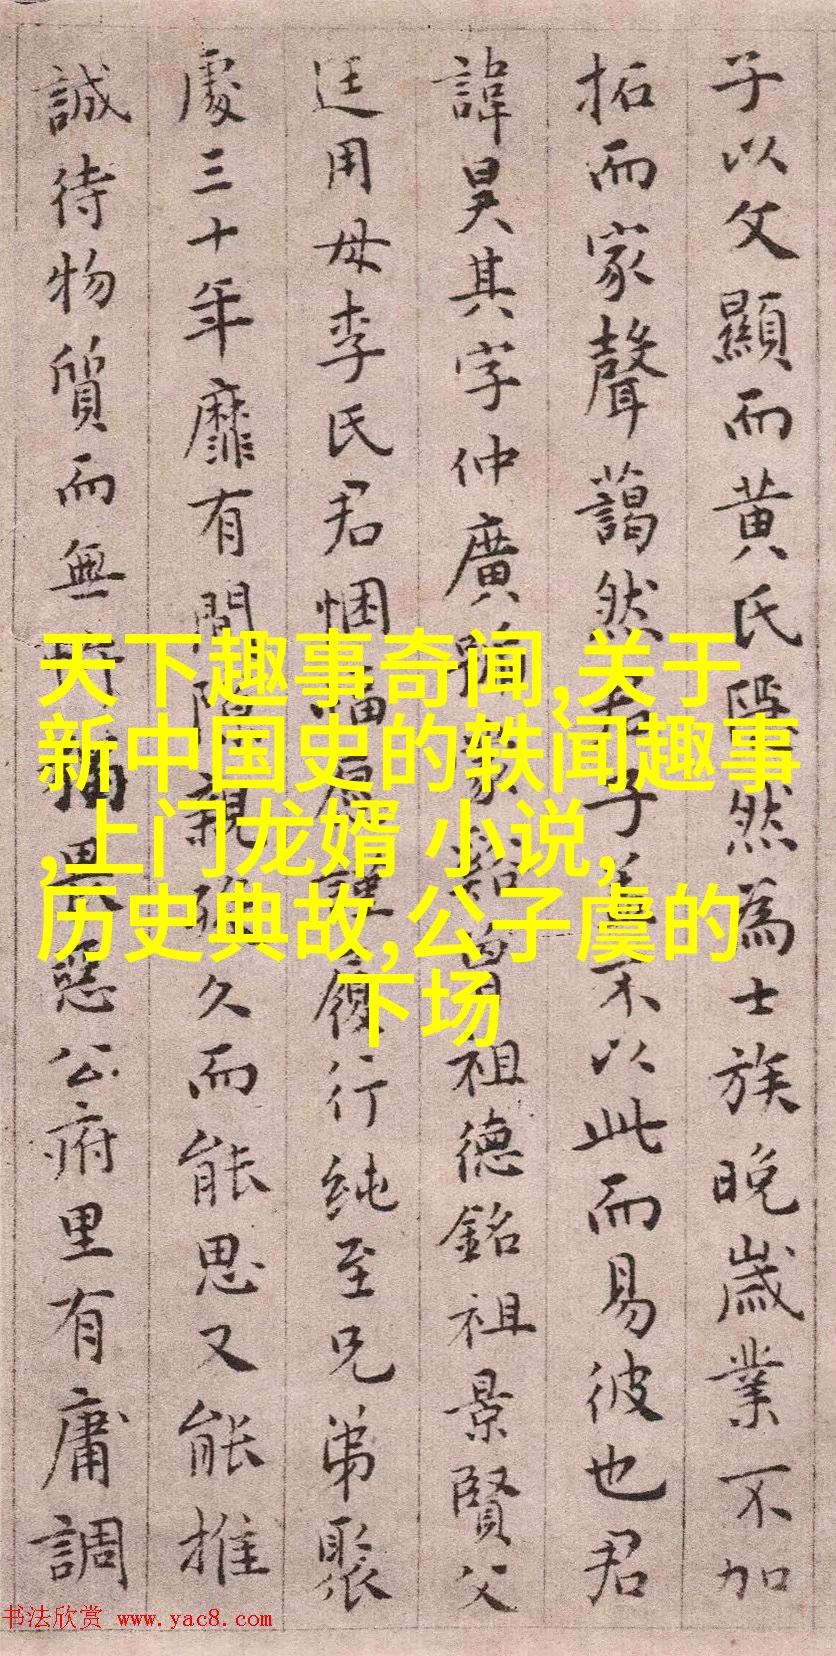 子以父顯而黄氏隱然為士族晚歲業不加
拓而家聲藹然君子不以此而易彼也君
諱昊其字仲廣祖德銘祖景賢父
廷用母李氏君悃愊履行純至兄弟聚
處三十年靡有間親久而能思又能推
誠待物質而無畏惡公府里有庸調
天下趣事奇闻,关于
新中国史的轶闻趣事
,上门龙婿 小说,
历史典故,公子虞的
下场
书法欣赏 www.yac8.com